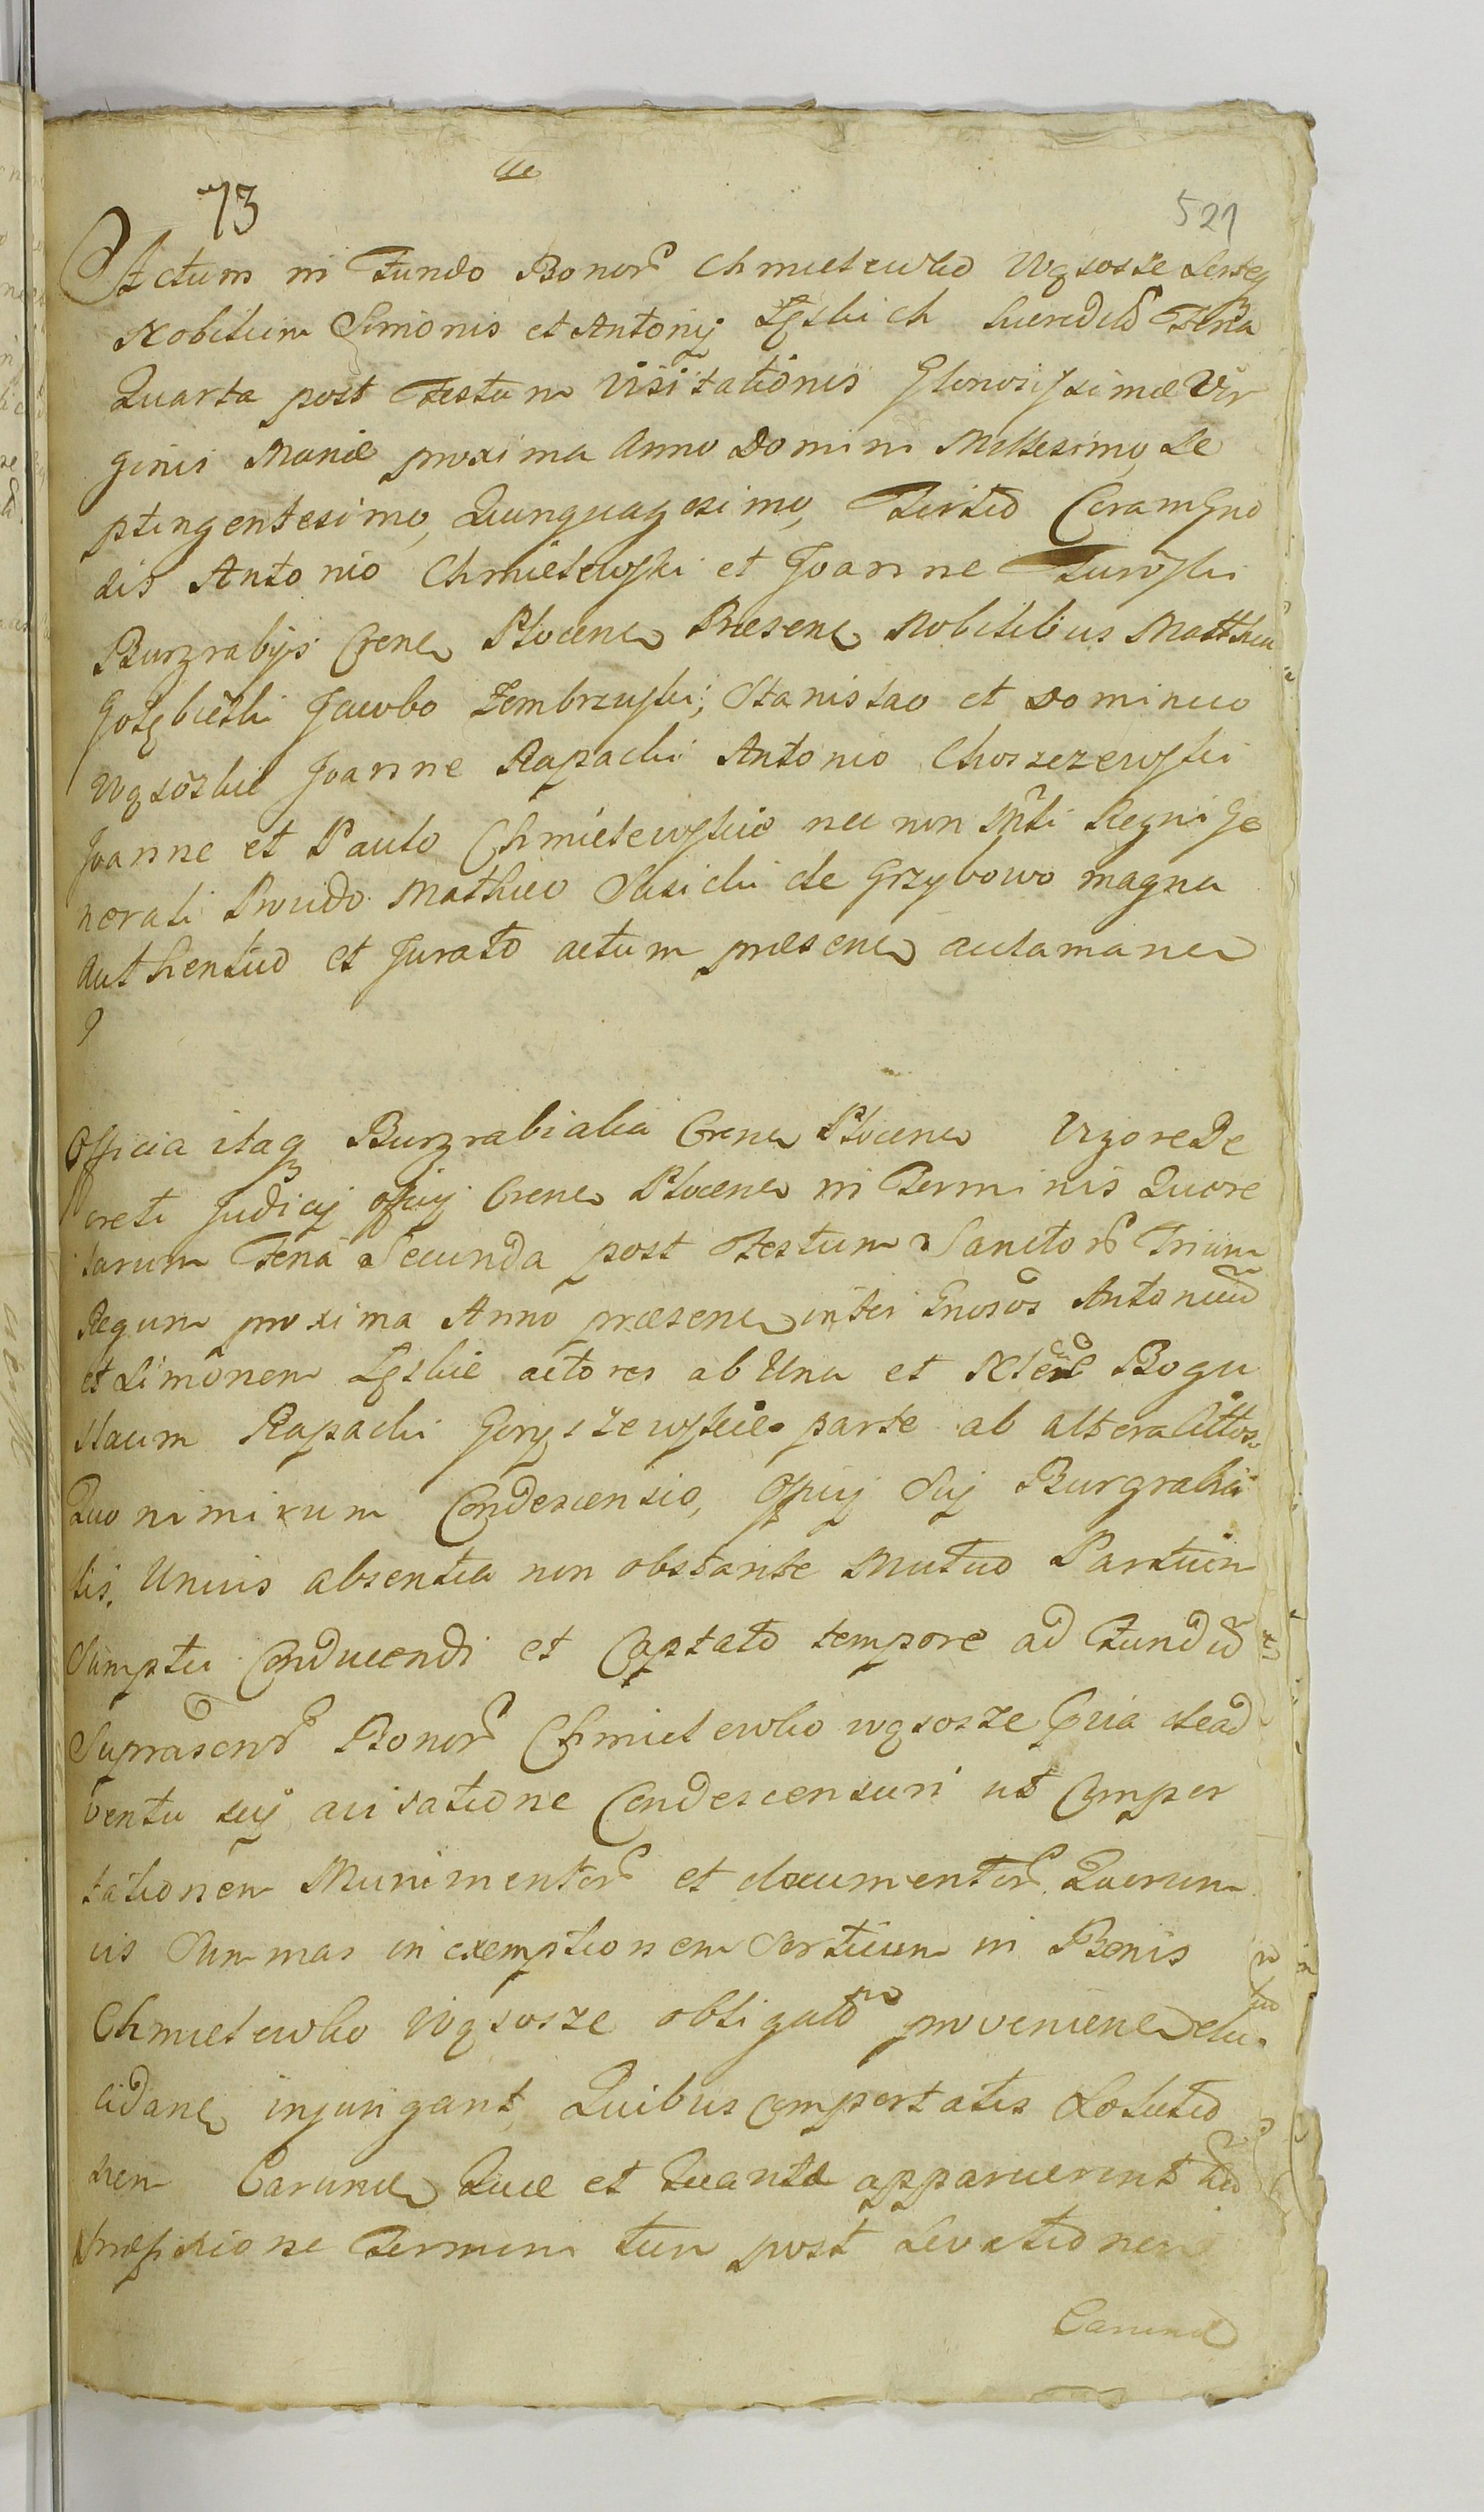 73
521
Actum in Fundo Bonor Chmielewko Wąsosze Sorteq
Nobilium Simonis et Antonij Łęskich hæredum Feria
Quarta post Festum Visitationis Gloriosissimæ Vir
ginis Mariæ proxima Anno Domini Millesimo, Se
ptingentesimo, Quinquagesimo, Tertio Coram Gnō
sis Antonio Chmielewski et Joanne Turōski
Burgrabijs Crenen Plocen Præsen Nobilibus Matthia
Gołębieski Jacobo Zembrzuski; Stanislao et Dominico
Wąsōskie Joanne Rapacki Antonio Choszczewski
Joanne et Paulo Chmielewskie nec non Mrli Regni Ge
nerali Provido Mathæo Sasicki de Grzybowo magna
Authentico et Jurato actum præsen aclaman
Officia itaq Burgrabialia Cren Plocen Vigore De
creti Judicij officij Cren Plocen in Terminis Quere
larum Feria Secunda post Festum Sanctor Trium
Regum proxima Anno præsen inter Gnosos Antonium
et Simonem Łęskie actores ab Una et Bogu
slaum Rapacki Goryszewskie parte ab altera Cittos
Quo nimirum Condescensio, Officij Sui Burgrabia
lis, Unius absentia non obstante Mutuo Partium
Sumptu Conducendi et Captato tempore ad Fundum
Suprascrip Bonor Chmielewko Wąsosze Pria de ad
ventu sui avisatione Condescensuri ut Compor
tationem Munimentor et documentor Quorum
vis Summas in exemptionem Sortium in Bonis
Chmielewko Wąsosze obligator provenien elu
cidan injungant, Quibus Comportatis Solutio
nem Earund Quæ et Quanta apparuerint
præfixione Termini tum post Levationem
Earund